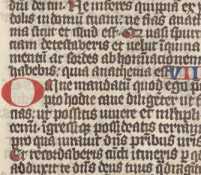 dei tui. Ne inferes quippiã ex i
dolo in domum tuam: ne fias anathe
ma sicut et illud est. Quasi spurci
tiam detestaberis et uelut īquina
mentū ac sordes abhominacioni
habebis: quia anathema est VIII
Omne mandatū quod ego p
cipio hodie caue diligēter ut
cias: ut possitis uiuere et multipli
cemini: īgressiqꝫ possideatis terram
pro qua iurauit dñs pribus uris
Et recordaberis cūcti itineris p q
adduxit te dñs deus tuus qdragīta